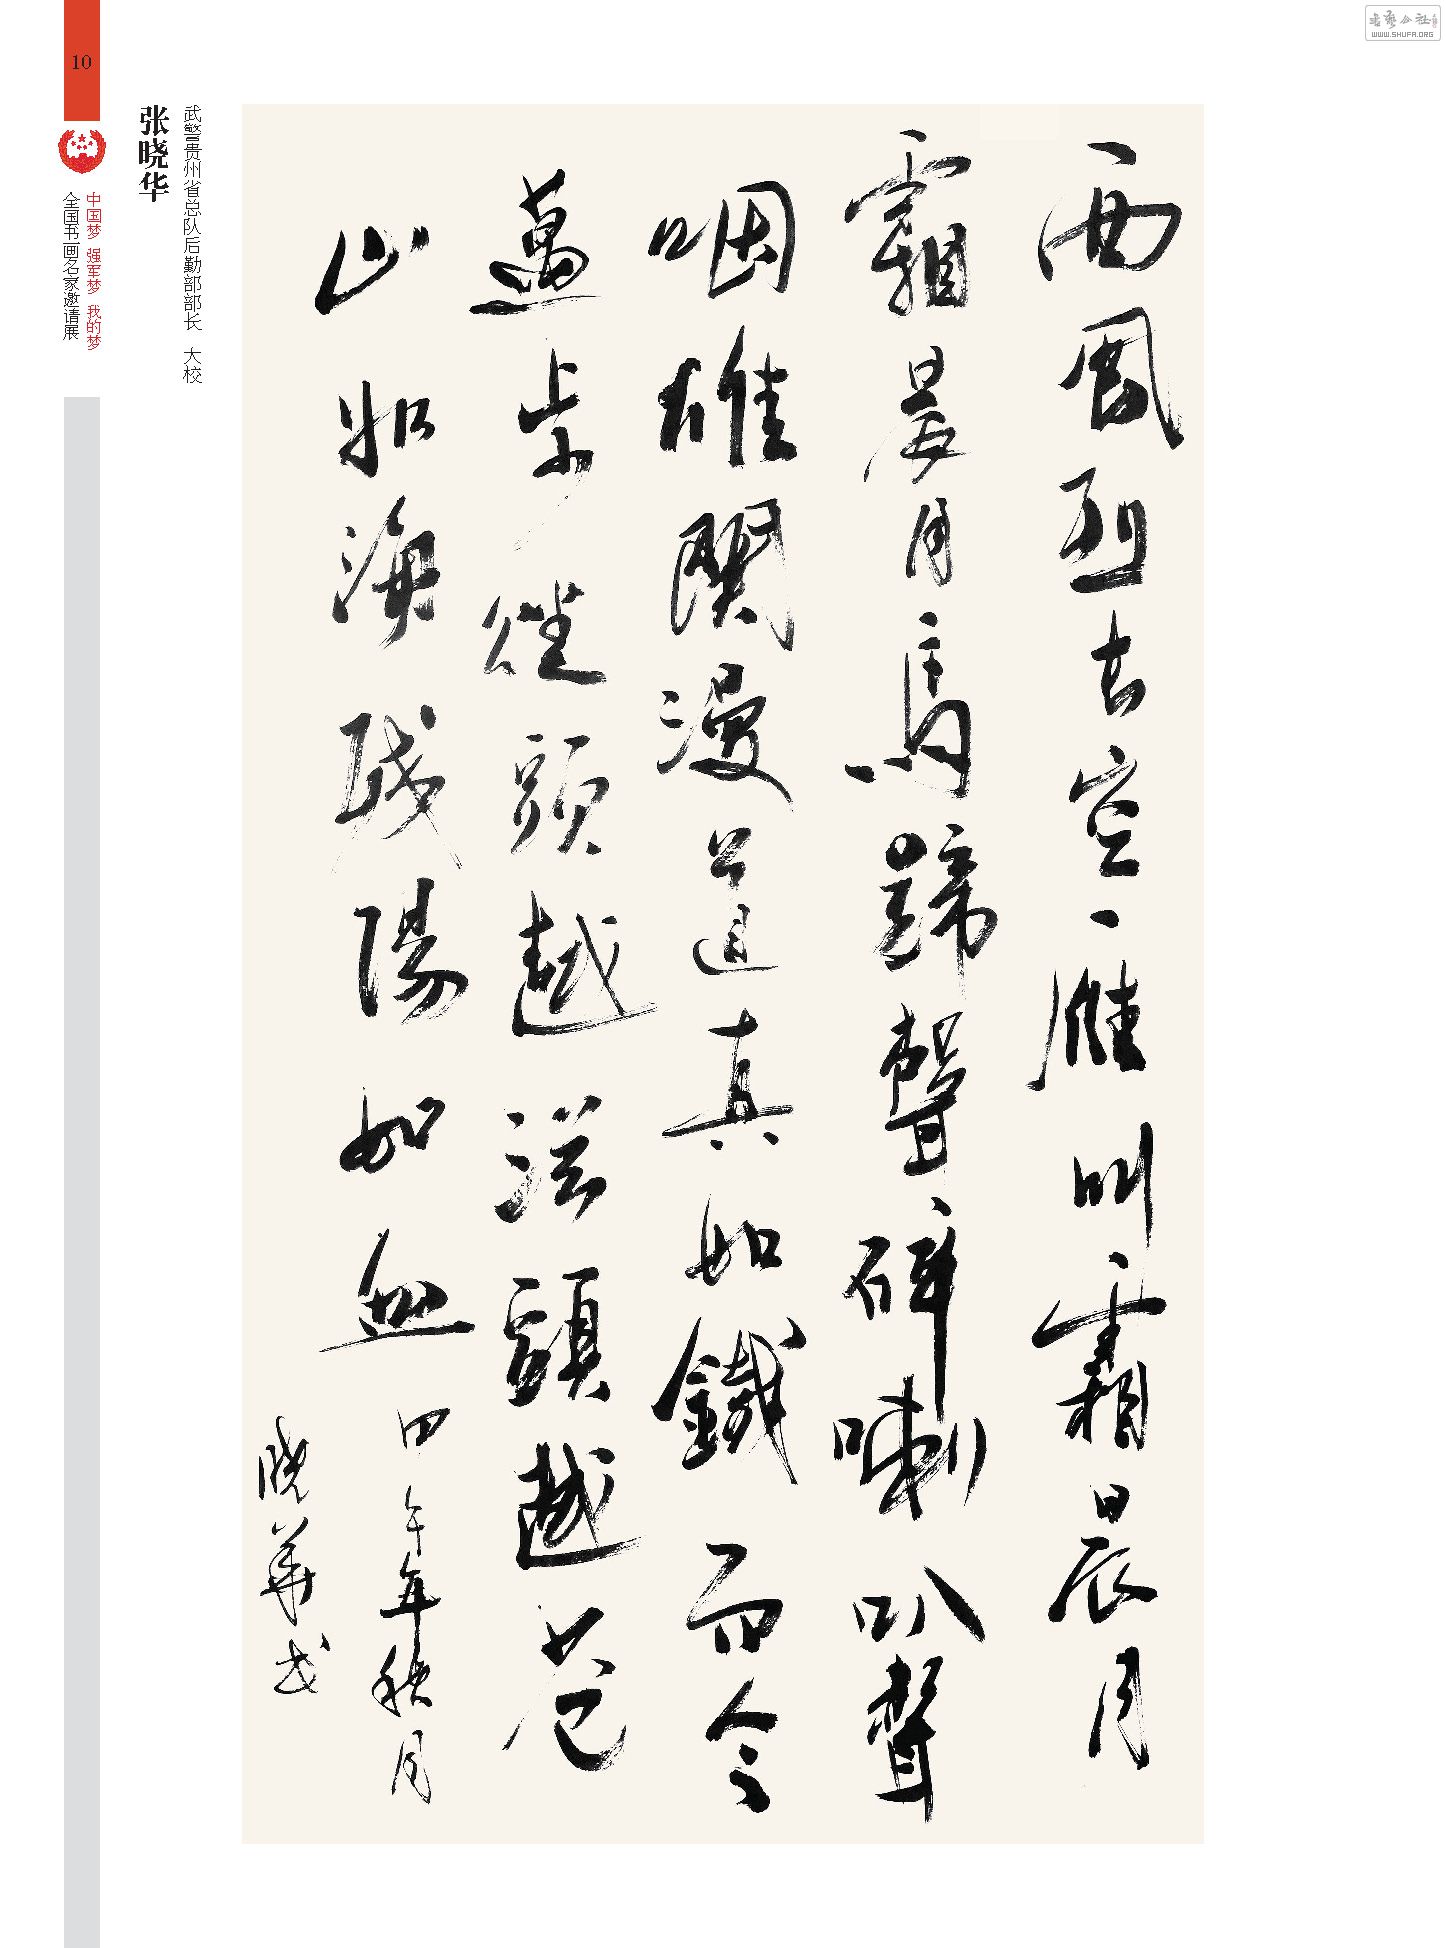 10
中国梦 强军梦 我的梦
全国书画名家邀请展
张晓华
武警贵州省总队后勤部部长 大校
西風烈長空雁叫霜晨月
霜晨月馬蹄聲碎喇叭聲
咽雄關漫道真如鐵而今
邁步從頭越從頭越蒼
山如海殘陽如血 甲午年秋月
曉華書
书艺公社
WWW.SHUFA.ORG